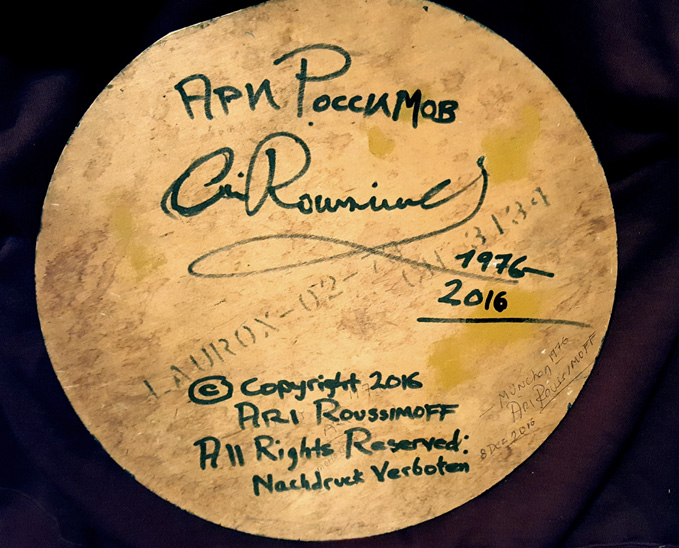 АРИ РОССИМОВ
Ari Roussimoff
1976-
2016
LAUROX-02-
3134
© Copyright 2016
ARI ROUSSIMOFF
All Rights Reserved:
Nachdruck Verboten
MÜNCHEN 1976
ARI ROUSSIMOFF
8 DEC 2016